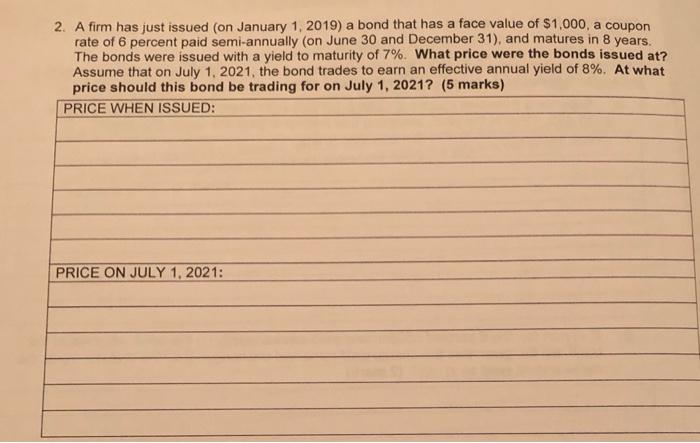 2. A firm has just issued (on January 1, 2019) a bond that has a face value of $1,000, a coupon
rate of 6 percent paid semi-annually (on June 30 and December 31), and matures in 8 years.
The bonds were issued with a yield to maturity of 7%. What price were the bonds issued at?
Assume that on July 1, 2021, the bond trades to earn an effective annual yield of 8%. At what
price should this bond be trading for on July 1, 2021? (5 marks)
PRICE WHEN ISSUED:
PRICE ON JULY 1, 2021: